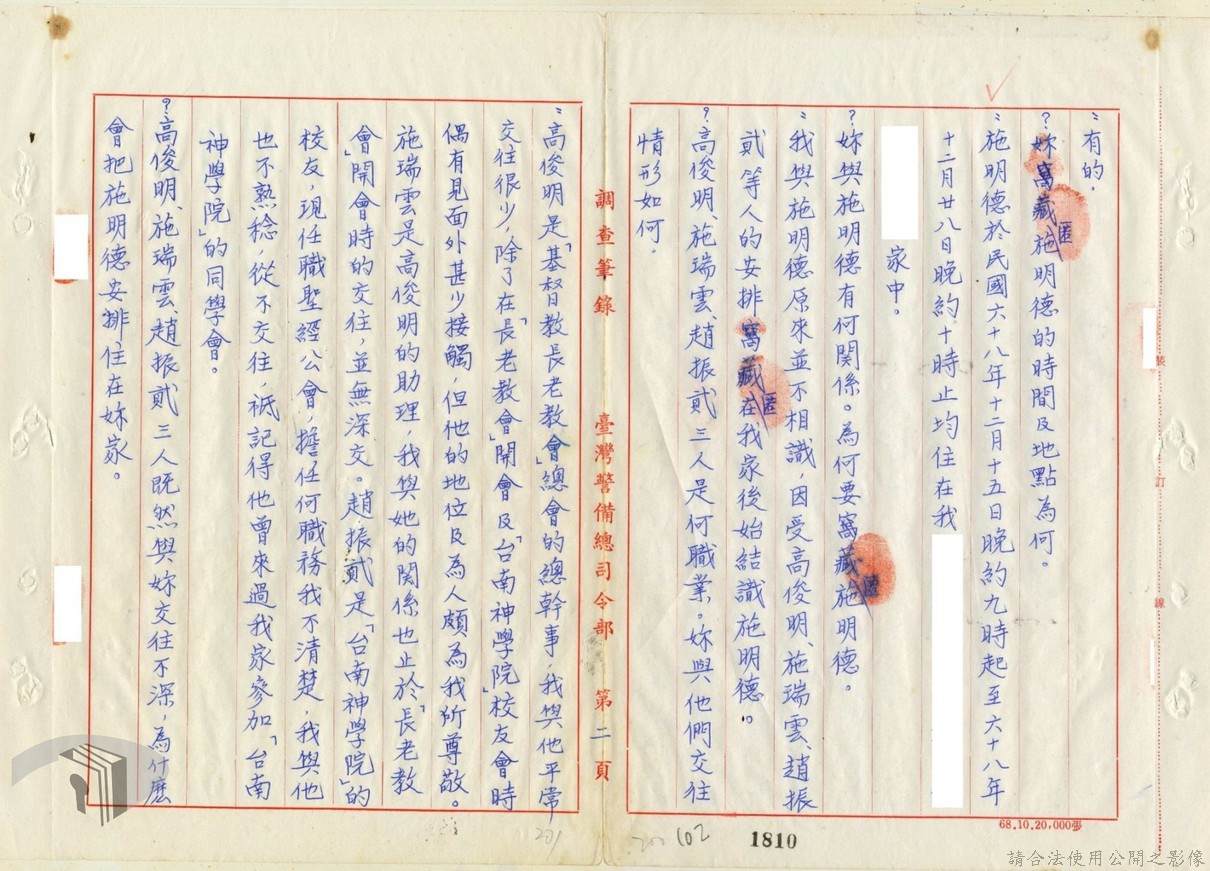 ：有的。
？妳窩藏匿施明德的時間及地點為何。
：施明德於民國六十八年十二月十五日晚約九時起至六十八年
十二月廿八日晚約十時止均住在我
家中。
？妳與施明德有何関係。為何要窩藏匿施明德。
：我與施明德原來並不相識，因受高俊明、施瑞雲、趙振
貳等人的安排窩藏匿在我家後始結識施明德。
？高俊明、施瑞雲、趙振貳三人是何職業。妳與他們交往
情形如何。
調查筆錄 臺灣警備總司令部 第二頁
：高俊明是「基督教長老教會」總會的總幹事，我與他平常
交往很少，除了在「長老教會」開會及「台南神學院」校友會時
偶有見面外甚少接觸，但他的地位及為人頗為我所尊敬。
施瑞雲是高俊明的助理，我與她的関係也止於「長老教
會」開會時的交往，並無深交。趙振貳是「台南神學院」的
校友，現任職聖經公會，擔任何職務我不清楚，我與他
也不熟稔，從不交往，祇記得他曾來過我家參加「台南
神學院」的同學會。
？高俊明、施瑞雲、趙振貳三人既然與妳交往不深，為什麼
會把施明德安排住在妳家。
裝
訂
線
68.10.20,000張
102
1810
201
請合法使用公開之影像